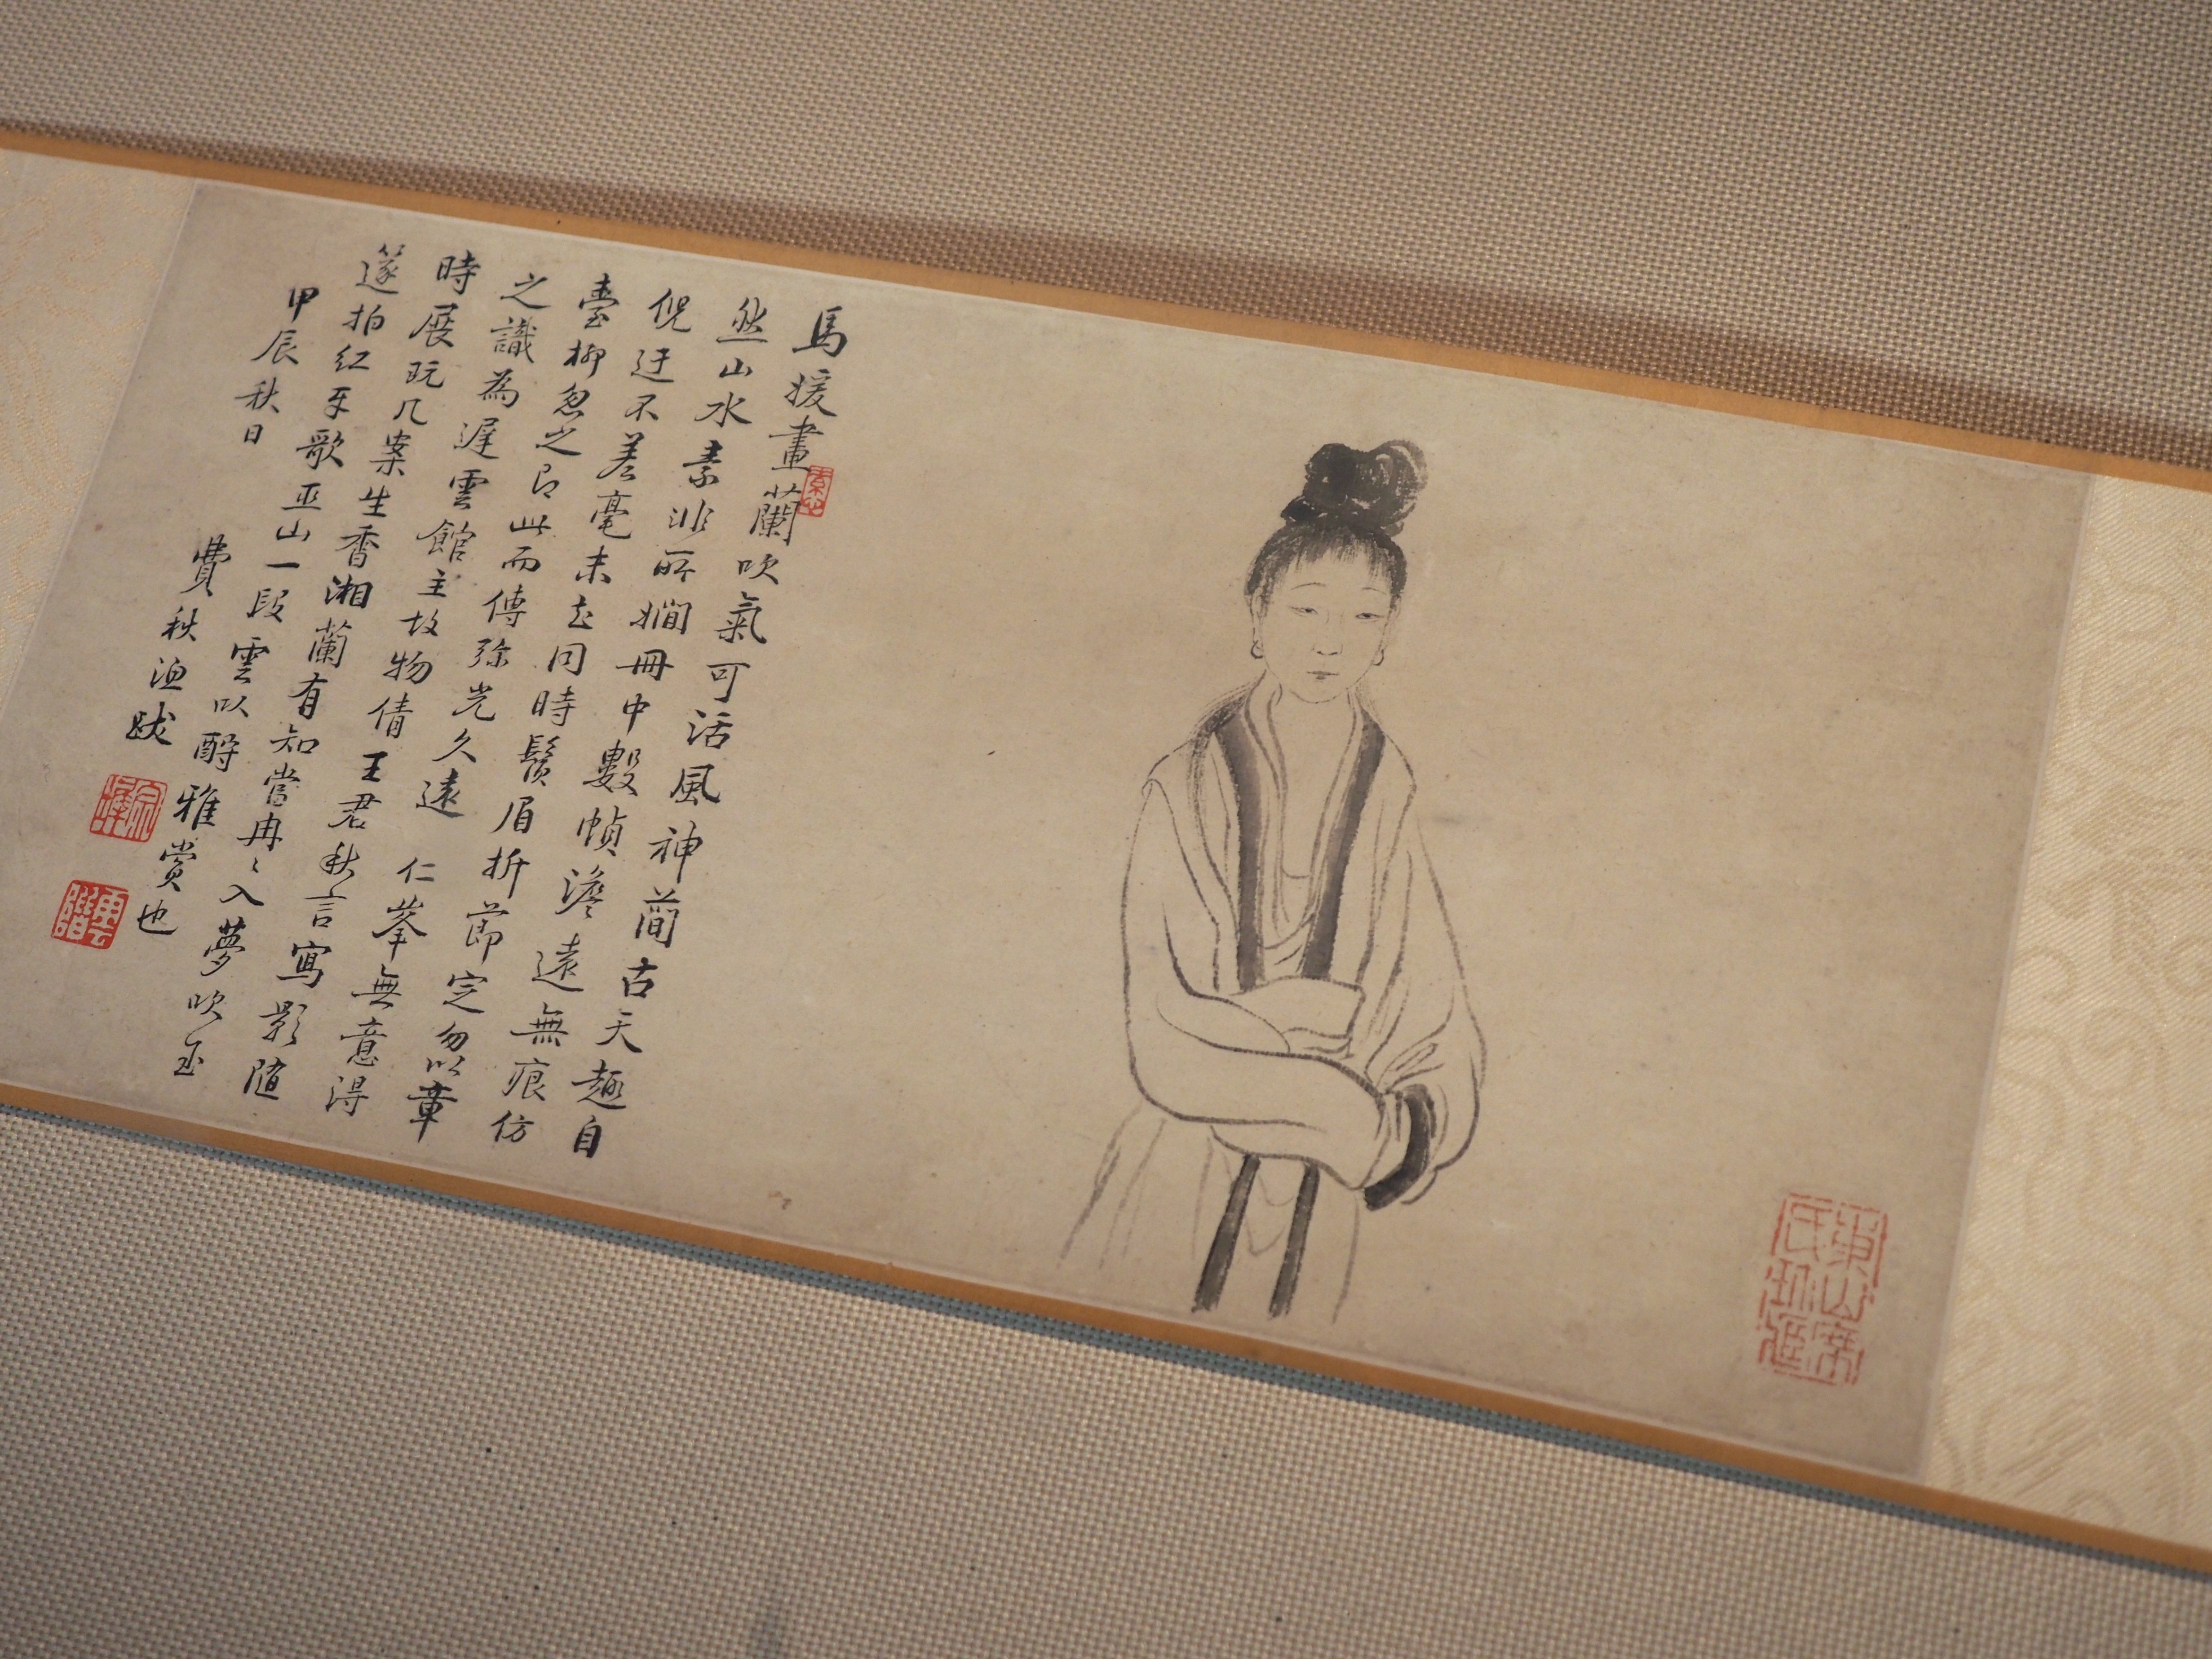 馬媛畫蘭吹氣可活風神簡古天趣自
然山水素非所嫻冊中數幀澹遠無痕仿
倪迂不差毫末同時鬚眉折節定勿以章
臺柳忽之即此而傳弥光久遠 仁峯無意得
之識為遲雲館主故物倩王君秋言寫影隨
時展玩几案生香湘蘭有知當冉〻入夢吹玉
篴拍紅牙歌巫山一段雲以酧雅賞也
甲辰秋日
費秋漁跋
雲階